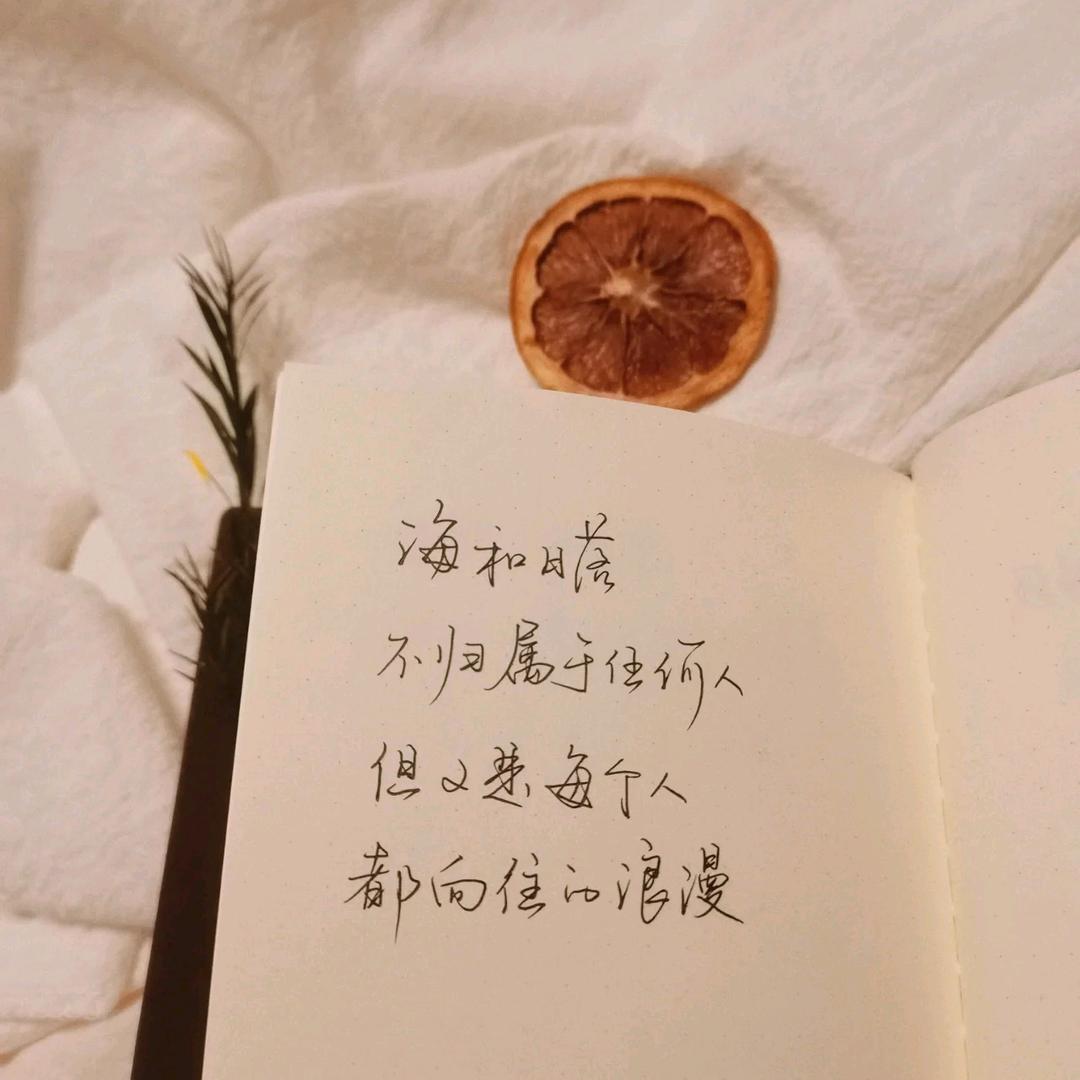 海和日落
不归属于任何人
但又是每个人
都向往的浪漫